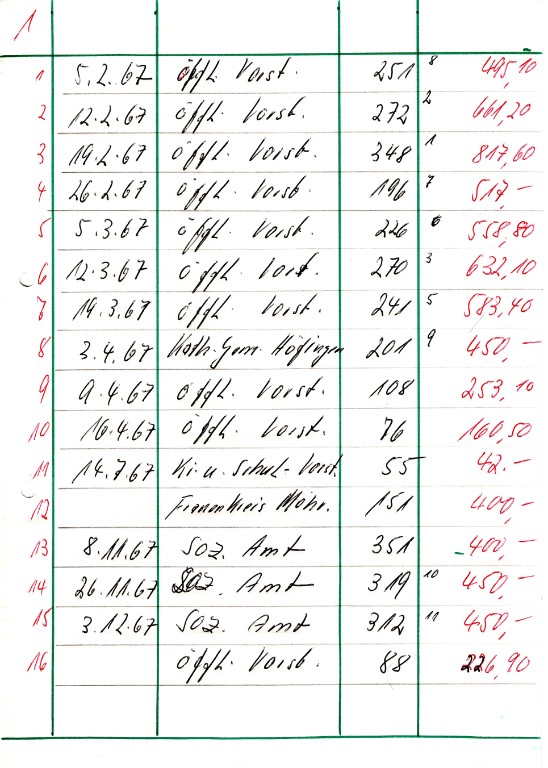 1
1 5.2.67 Öffl. Vorst. 251 8 495,10
2 12.2.67 Öffl. Vorst. 272 2 661,20
3 19.2.67 Öffl. Vorst. 348 1 817,60
4 26.2.67 Öffl. Vorst. 196 7 517,-
5 5.3.67 Öffl. Vorst. 226 6 558,80
6 12.3.67 Öffl. Vorst. 270 3 632,10
7 19.3.67 Öffl. Vorst. 241 5 583,40
8 3.4.67 Kath. Gem. Höfingen 201 9 450,-
9 9.4.67 Öffl. Vorst. 108 253,10
10 16.4.67 Öffl. Vorst. 76 160,50
11 14.7.67 Ki. u. Schul-Vorst. 55 42.-
12 Frauenkreis Möhr. 151 400,-
13 8.11.67 Soz. Amt 351 400,-
14 26.11.67 Soz. Amt 319 10 450,-
15 3.12.67 Soz. Amt 312 11 450,-
16 Öffl. Vorst. 88 226,90